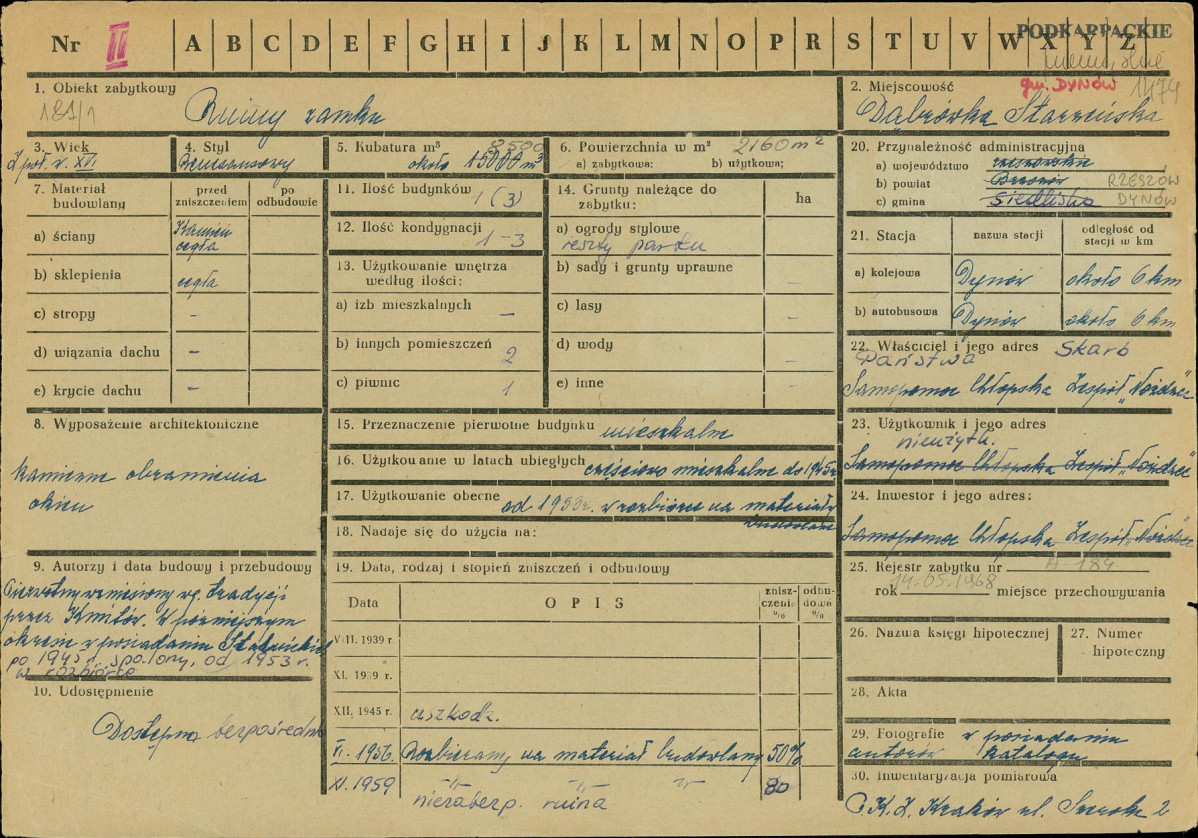 Nr II A B C D E F G H I J K L M N O P R S T U V W X Y Z
PODKARPACKIE
gm. DYNÓW 1474
1. Obiekt zabytkowy
181/1
Ruiny zamku
2. Miejscowość
Dąbrówka Starzeńska
3. Wiek
2 poł. w. XVI
4. Styl
Renesansowy
5. Kubatura m³
8500
około 15000 m³
6. Powierzchnia w m² 2160 m²
a) zabytkowa: b) użytkowa;
20. Przynależność administracyjna
a) województwo rzeszowskie
b) powiat Brzozów RZESZÓW
c) gmina Siedliska DYNÓW
7. Materiał budowlany
przed zniszczeniem
po odbudowie
a) ściany Kamień cegła
b) sklepienia cegła
c) stropy –
d) wiązania dachu –
e) krycie dachu –
11. Ilość budynków 1 (3)
12. Ilość kondygnacji 1-3
13. Użytkowanie wnętrza według ilości:
a) izb mieszkalnych –
b) innych pomieszczeń 2
c) piwnic 1
14. Grunty należące do zabytku:
ha
a) ogrody stylowe
reszty parku
b) sady i grunty uprawne –
c) lasy –
d) wody –
e) inne –
21. Stacja
nazwa stacji
odległość od stacji w km
a) kolejowa Dynów około 6 km
b) autobusowa Dynów około 6 km
22. Właściciel i jego adres Skarb
Państwa
Samopomoc Chłopska Zespół „Nozdrzec"
8. Wyposażenie architektoniczne
kamienne obramienia
okien
15. Przeznaczenie pierwotne budynku mieszkalne
16. Użytkowanie w latach ubiegłych częściowo mieszkalne do 1945r.
17. Użytkowanie obecne od 1953r. w rozbiórce na materiały
budowlane
18. Nadaje się do użycia na:
23. Użytkownik i jego adres
nieużytk.
Samopomoc Chłopska Zespół „Nozdrzec"
24. Inwestor i jego adres:
Samopomoc Chłopska Zespół „Nozdrzec"
9. Autorzy i data budowy i przebudowy
Pierwotny wzniesiony wg. tradycji
przez Kmitów. W późniejszym
okresie w posiadaniu Stadnickich
po 1945 r. spalony, od 1953 r.
w rozbiórce
10. Udostępnienie
Dostępna bezpośrednio
19. Data, rodzaj i stopień zniszczeń i odbudowy
Data
OPIS
zniszczenia %
odbudowa %
VIII. 1939 r.
XI. 1939 r.
XII. 1945 r. uszkodz.
XI. 1956. Rozbierany na materiał budowlany 50%
XI. 1959 -"- -"- -"- 80
niezabezp. ruina
25. Rejestr zabytku nr A-184
rok 14-05-1968 miejsce przechowywania
26. Nazwa księgi hipotecznej
27. Numer hipoteczny
28. Akta
29. Fotografie w posiadaniu
autorów katalogu
30. Inwentaryzacja pomiarowa
P.K.Z. Kraków ul. Szeroka 2